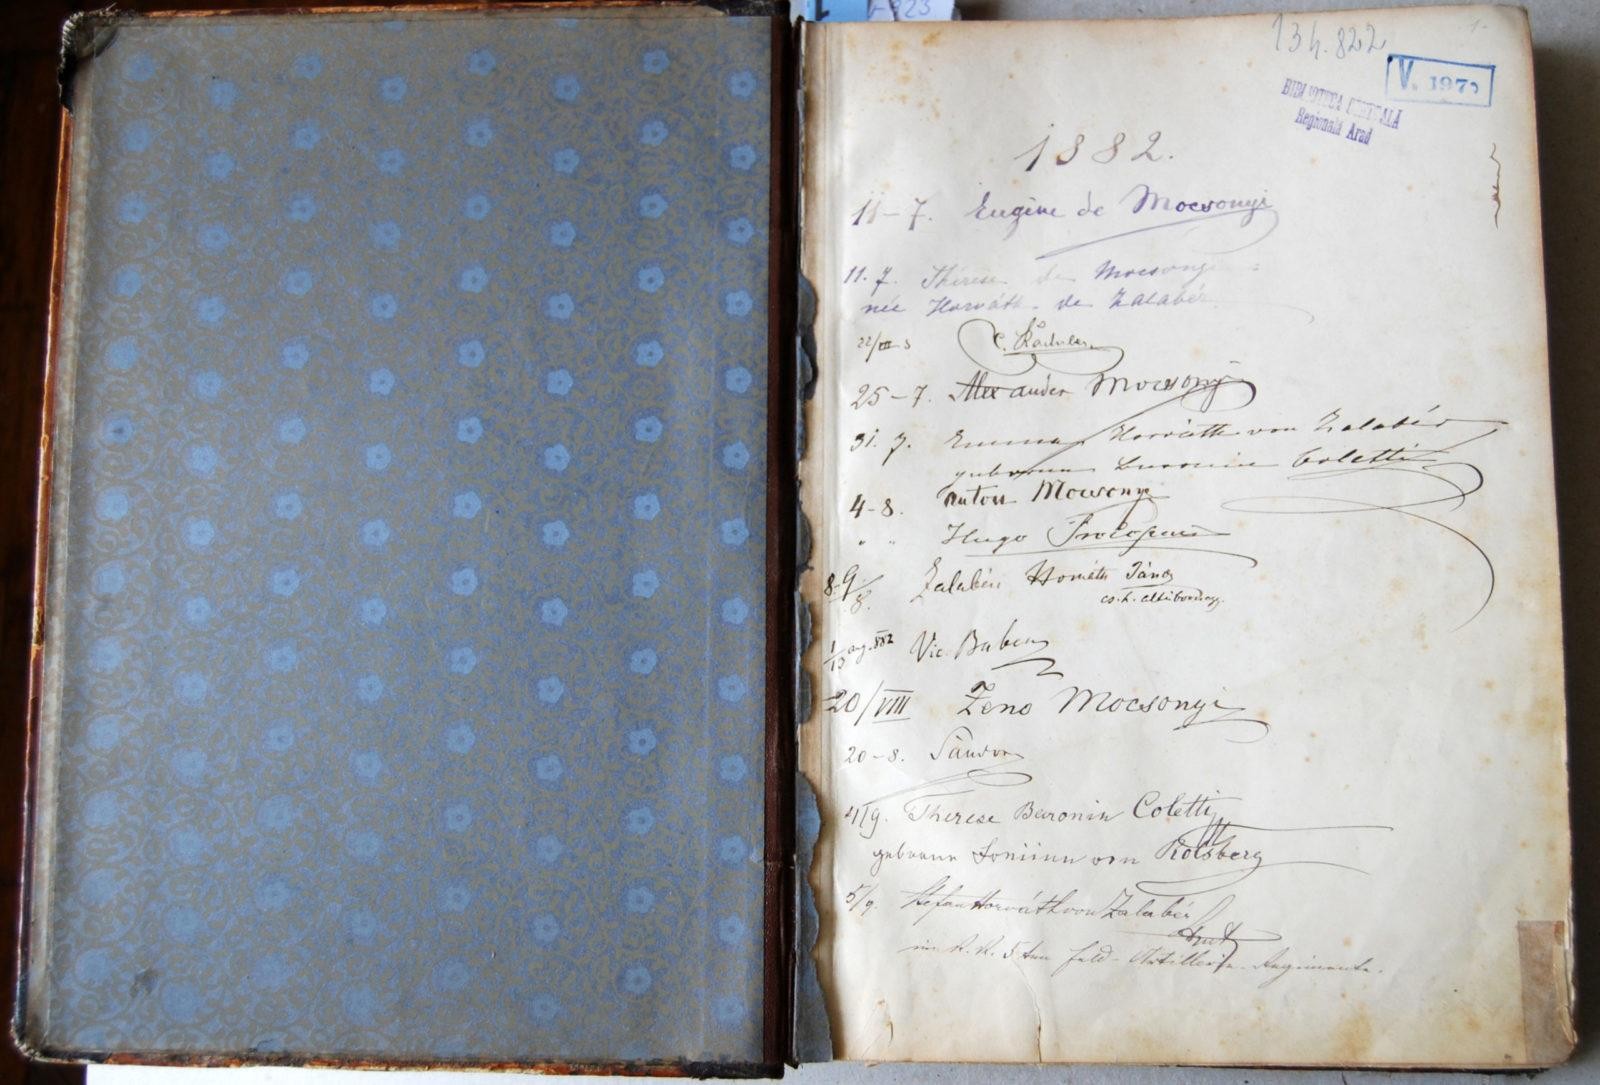 134.822
V. 197
BIBLIOTECA CENTRALA
Regională Arad
1882.
11-7. Eugène de Mocsonyi
11. 7. Thérèse de Mocsonyi
née Horváth de Zalabér
22/VII
25-7. Alexander Mocsonyi
31. 7. Emma Horváth von Zalabér
geborene Baronin Coletti
4-8. Anton Mocsonyi
" " Hugo
8-9/8. Zalabéri Horváth János
1/13 aug. 882 Vic. Babeș
20/VIII Zeno Mocsonyi
20-8. Sándor
4/9. Therese Baronin Coletti
geborene von Kolsberg
5/9. Stefan Horváth von Zalabér
im K. K. 5ten Feld-Artillerie-Regimente.